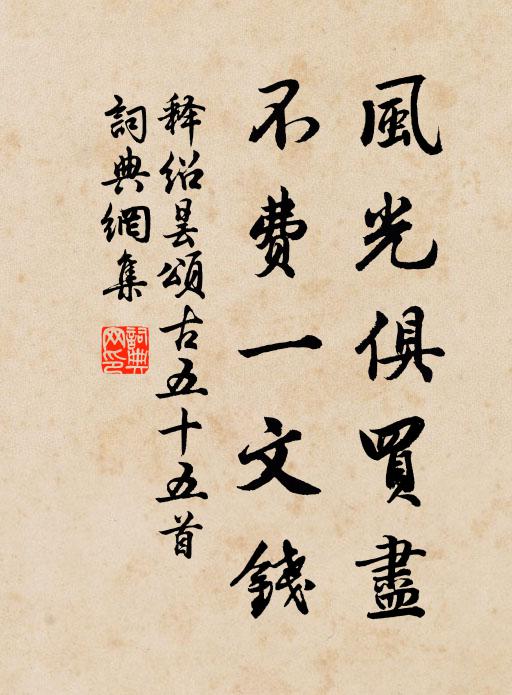 風光俱買盡
不費一文錢
释绍昙頌古五十五首
詞典網集
詞典網印